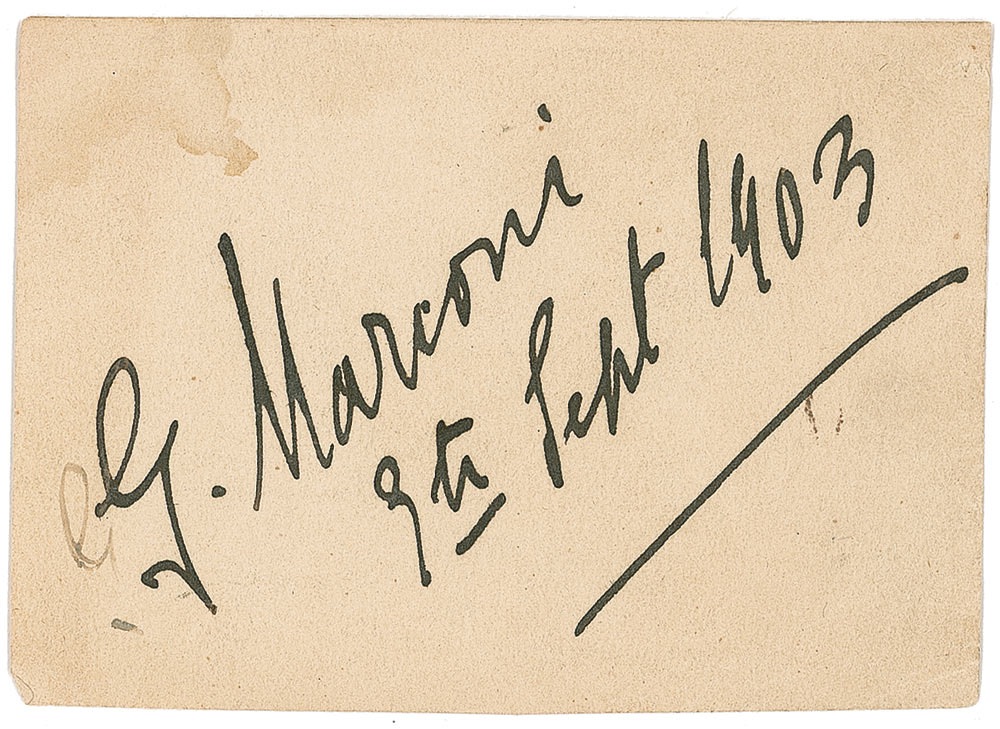 G. Marconi
9th Sept 1903